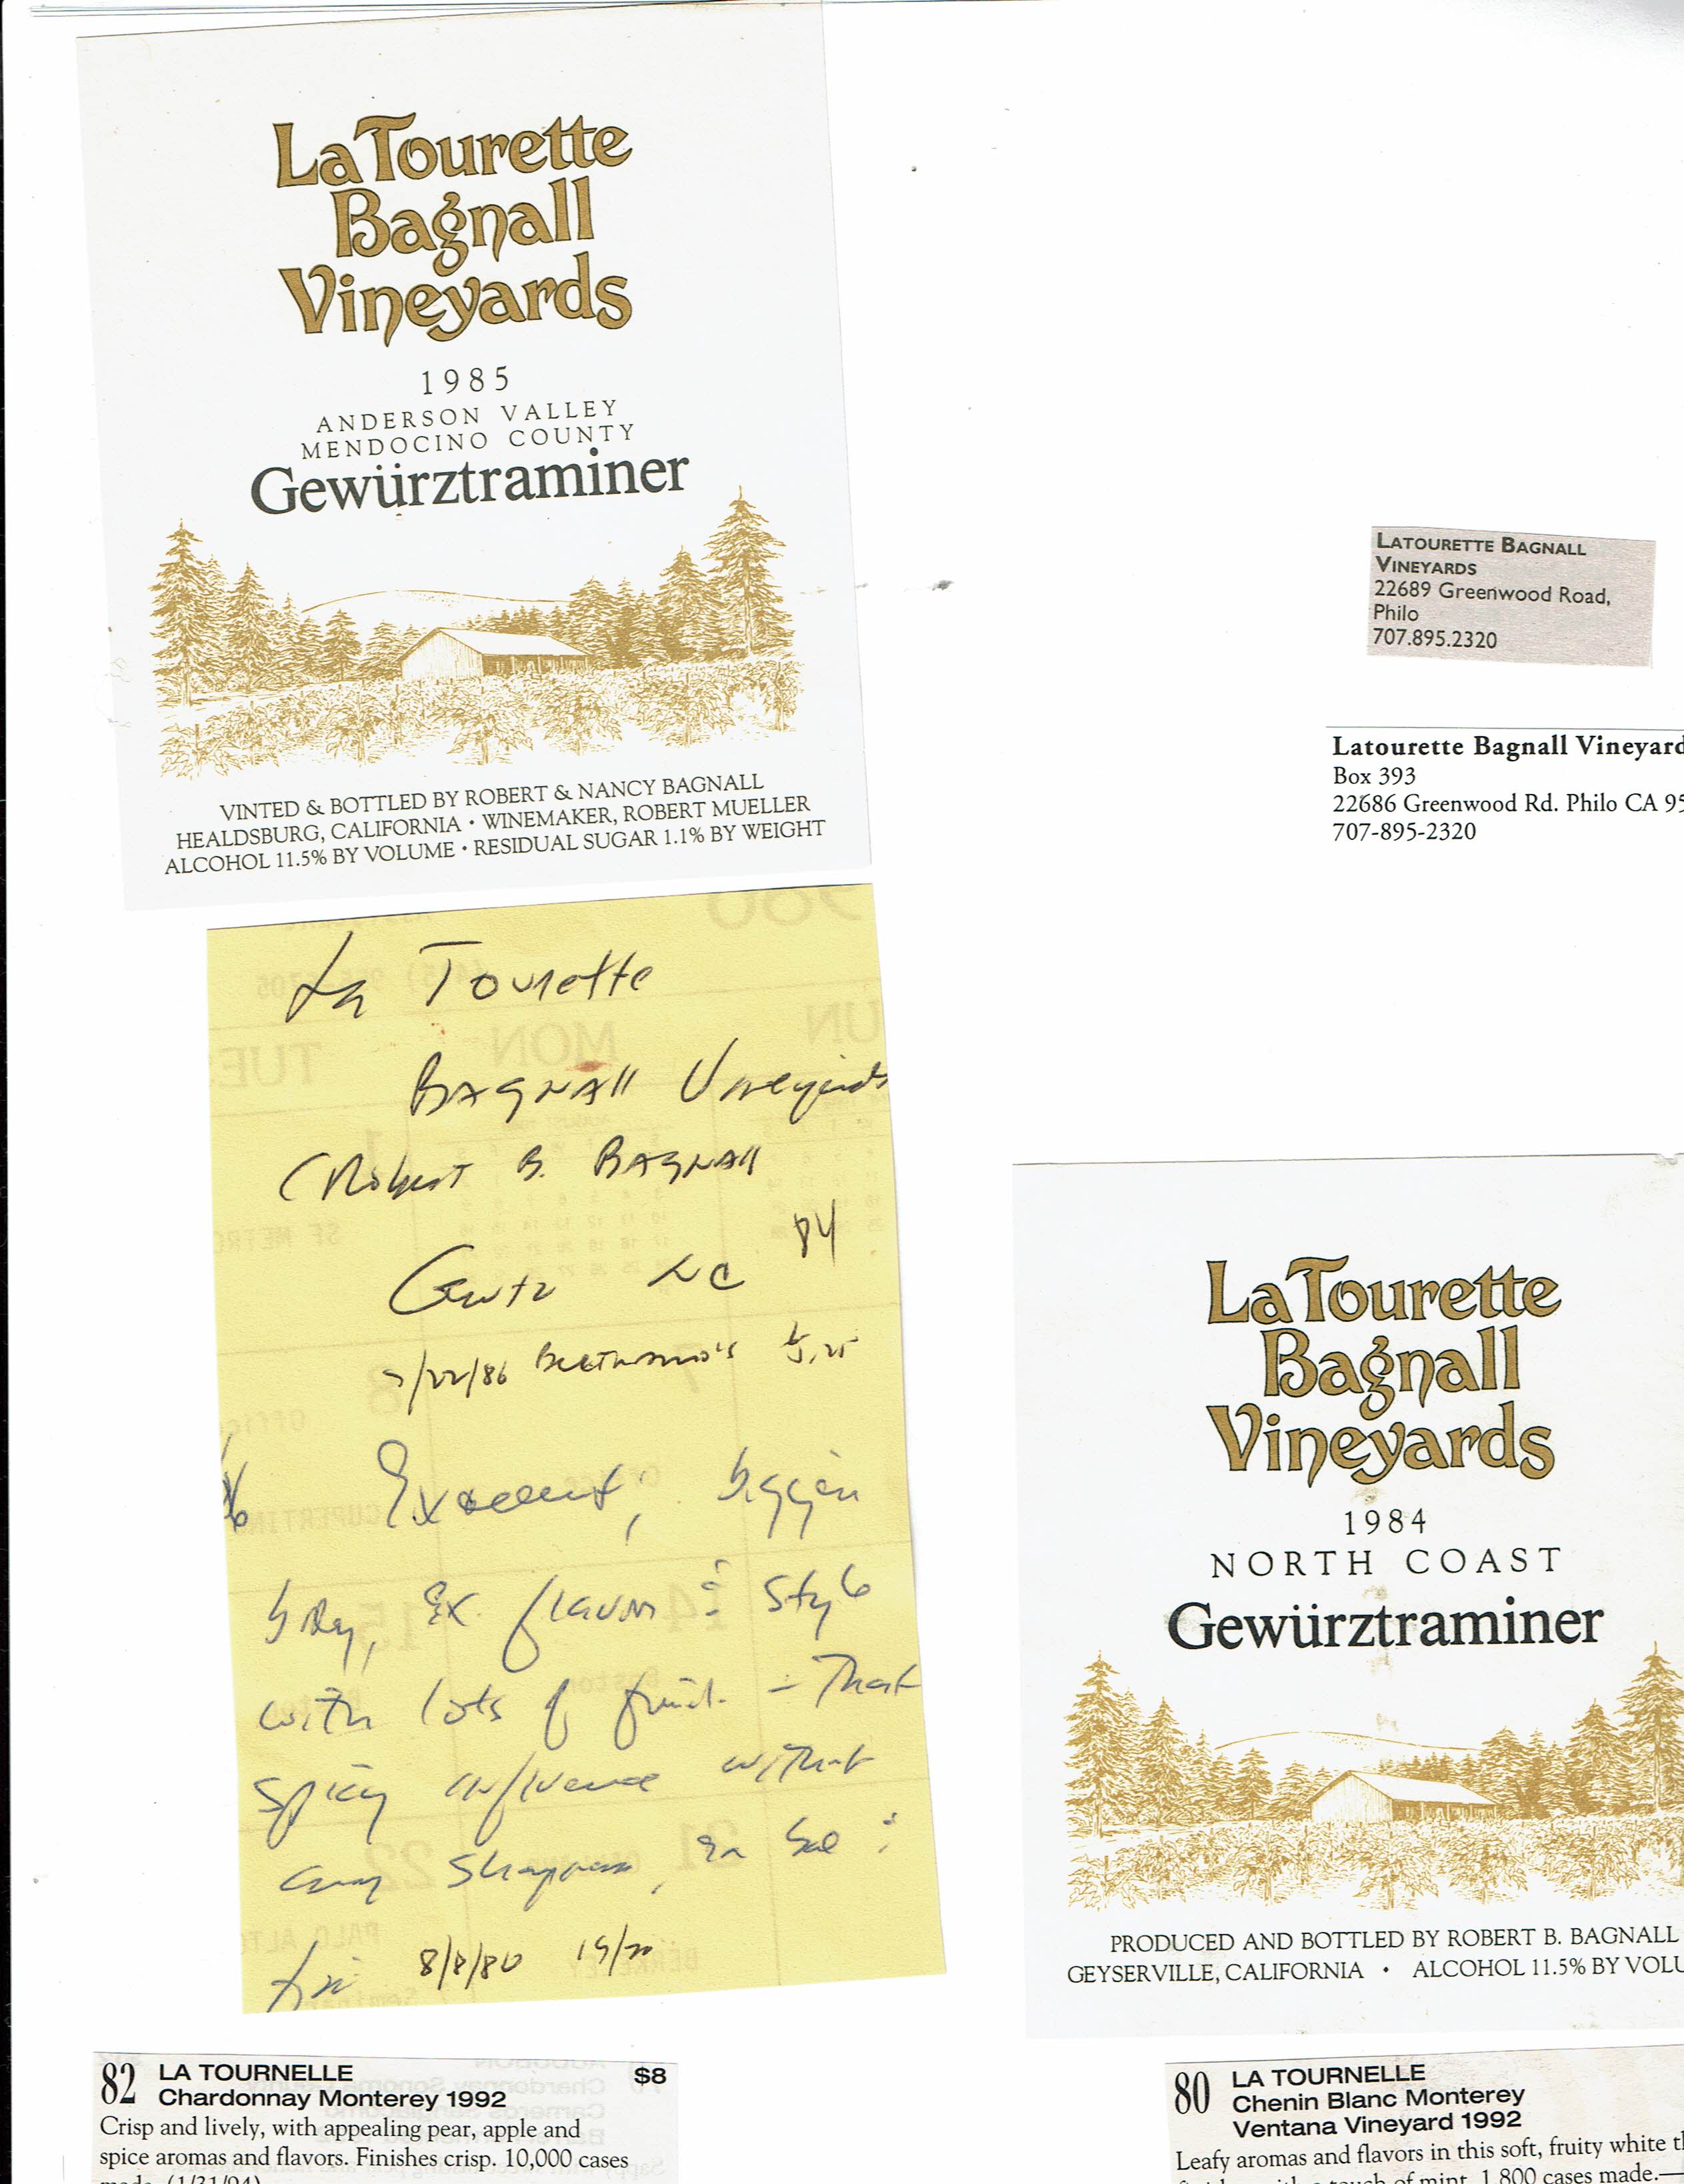 La Tourette
Bagnall
Vineyards
1985
ANDERSON VALLEY
MENDOCINO COUNTY
Gewürztraminer
VINTED & BOTTLED BY ROBERT & NANCY BAGNALL
HEALDSBURG, CALIFORNIA • WINEMAKER, ROBERT MUELLER
ALCOHOL 11.5% BY VOLUME • RESIDUAL SUGAR 1.1% BY WEIGHT
LATOURETTE BAGNALL
VINEYARDS
22689 Greenwood Road,
Philo
707.895.2320
Latourette Bagnall Vineyard
Box 393
22686 Greenwood Rd. Philo CA 95
707-895-2320
La Tourette
Bagnall Vineyards
(Robert B. Bagnall
Gewtz NC 84
/22/86 5.25
Excellent, bigger
body, Ex. flavor & style
with lots of fruit - That
spicy influence without
any sharpness,
8/8/80
La Tourette
Bagnall
Vineyards
1984
NORTH COAST
Gewürztraminer
PRODUCED AND BOTTLED BY ROBERT B. BAGNALL
GEYSERVILLE, CALIFORNIA • ALCOHOL 11.5% BY VOLU
82 LA TOURNELLE $8
Chardonnay Monterey 1992
Crisp and lively, with appealing pear, apple and
spice aromas and flavors. Finishes crisp. 10,000 cases
made. (1/31/94)
80 LA TOURNELLE
Chenin Blanc Monterey
Ventana Vineyard 1992
Leafy aromas and flavors in this soft, fruity white t
touch of mint. 1,800 cases made.—